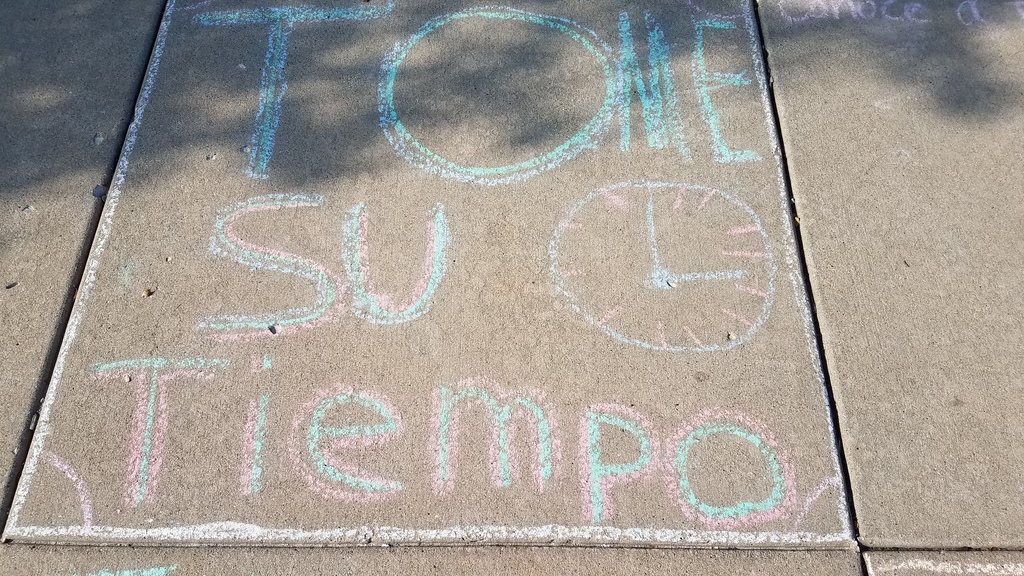 TOME
SU
Tiempo
Conoce a